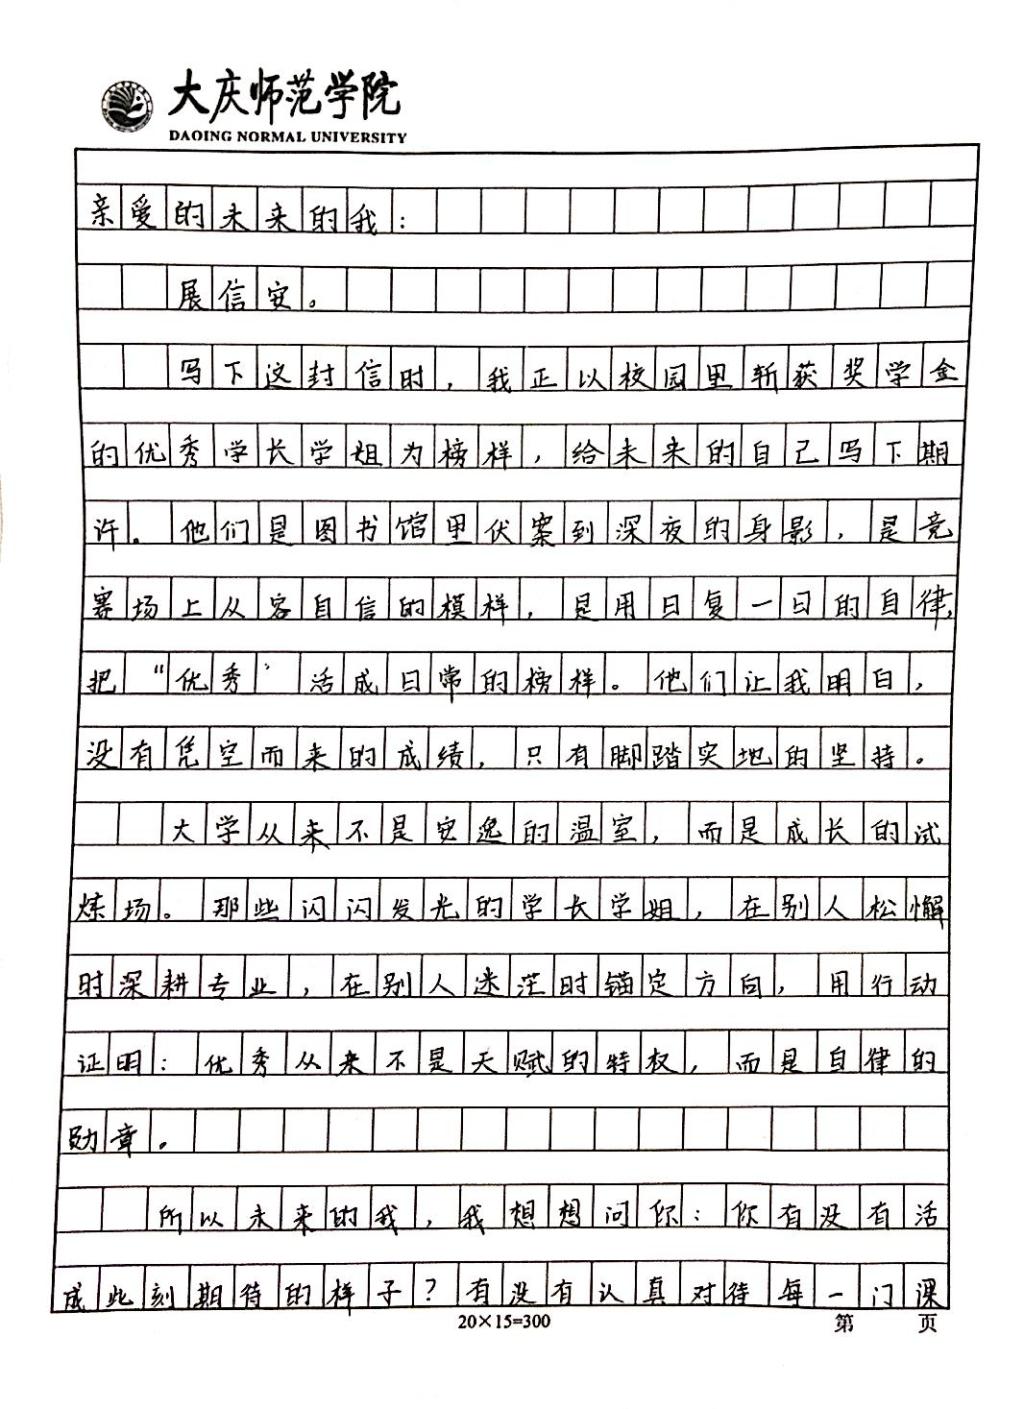 大庆师范学院
DAQING NORMAL UNIVERSITY
亲爱的未来的我：
展信安。
写下这封信时，我正以校园里斩获奖学金
的优秀学长学姐为榜样，给未来的自己写下期
许。他们是图书馆里伏案到深夜的身影，是竞
赛场上从容自信的模样，是用日复一日的自律，
把“优秀”活成日常的榜样。他们让我明白，
没有凭空而来的成绩，只有脚踏实地的坚持。
大学从来不是安逸的温室，而是成长的试
炼场。那些闪闪发光的学长学姐，在别人松懈
时深耕专业，在别人迷茫时锚定方向，用行动
证明：优秀从来不是天赋的特权，而是自律的
勋章。
所以未来的我，我想想问你：你有没有活
成此刻期待的样子？有没有认真对待每一门课
20×15=300
第 页